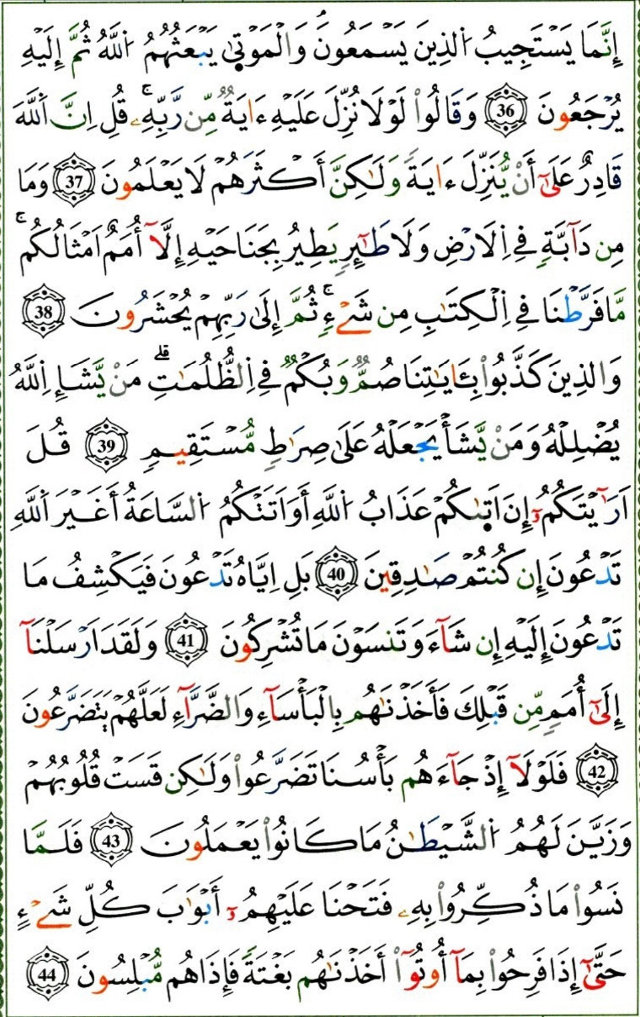 إِنَّمَا يَسْتَجِيبُ اُ۬لذِينَ يَسْمَعُونَۖ وَالْمَوْت۪ىٰ يَبْعَثُهُمُ اُ۬للَّهُ ثُمَّ إِلَيْهِ
يُرْجَعُونَ 36 وَقَالُواْ لَوْلَا نُزِّلَ عَلَيْهِ ءَايَةٞ مِّن رَّبِّهِۦۖ قُلِ اِنَّ اَ۬للَّهَ
قَادِرٌ عَلَىٰٓ أَنْ يُّنَزِّلَ ءَايَةٗ وَلَٰكِنَّ أَكْثَرَهُمْ لَا يَعْلَمُونَ 37 وَمَا
مِن دَآبَّةٖ فِے اِ۬لَارْضِ وَلَا طَٰٓئِرٖ يَطِيرُ بِجَنَاحَيْهِ إِلَّآ أُمَمٌ اَمْثَالُكُمۖ
مَّا فَرَّطْنَا فِے اِ۬لْكِتَٰبِ مِن شَےْءٖۖ ثُمَّ إِلَىٰ رَبِّهِمْ يُحْشَرُونَ 38
وَالذِينَ كَذَّبُواْ بِـَٔايَٰتِنَا صُمّٞ وَبُكْمٞ فِے اِ۬لظُّلُمَٰتِۗ مَنْ يَّشَإِ اِ۬للَّهُ
يُضْلِلْهُ وَمَنْ يَّشَأْ يَجْعَلْهُ عَلَىٰ صِرَٰطٖ مُّسْتَقِيمٖ 39 قُلَ
اَرَٰٓيْتَكُمُۥٓ إِنَ اَت۪ىٰكُمْ عَذَابُ اُ۬للَّهِ أَوَ اَتَتْكُمُ اُ۬لسَّاعَةُ أَغَيْرَ اَ۬للَّهِ
تَدْعُونَ إِن كُنتُمْ صَٰدِقِينَ 40 بَلِ اِيَّاهُ تَدْعُونَ فَيَكْشِفُ مَا
تَدْعُونَ إِلَيْهِ إِن شَآءَ وَتَنسَوْنَ مَا تُشْرِكُونَ 41 وَلَقَدَ اَرْسَلْنَآ
إِلَىٰٓ أُمَمٖ مِّن قَبْلِكَ فَأَخَذْنَٰهُم بِالْبَأْسَآءِ وَالضَّرَّآءِ لَعَلَّهُمْ يَتَضَرَّعُونَ
42 فَلَوْلَآ إِذْ جَآءَهُم بَأْسُنَا تَضَرَّعُواْ وَلَٰكِن قَسَتْ قُلُوبُهُمْ
وَزَيَّنَ لَهُمُ اُ۬لشَّيْطَٰنُ مَا كَانُواْ يَعْمَلُونَ 43 فَلَمَّا
نَسُواْ مَا ذُكِّرُواْ بِهِۦ فَتَحْنَا عَلَيْهِمُۥٓ أَبْوَٰبَ كُلِّ شَےْءٍ
حَتَّىٰٓ إِذَا فَرِحُواْ بِمَآ أُوتُوٓاْ أَخَذْنَٰهُم بَغْتَةٗ فَإِذَا هُم مُّبْلِسُونَ 44